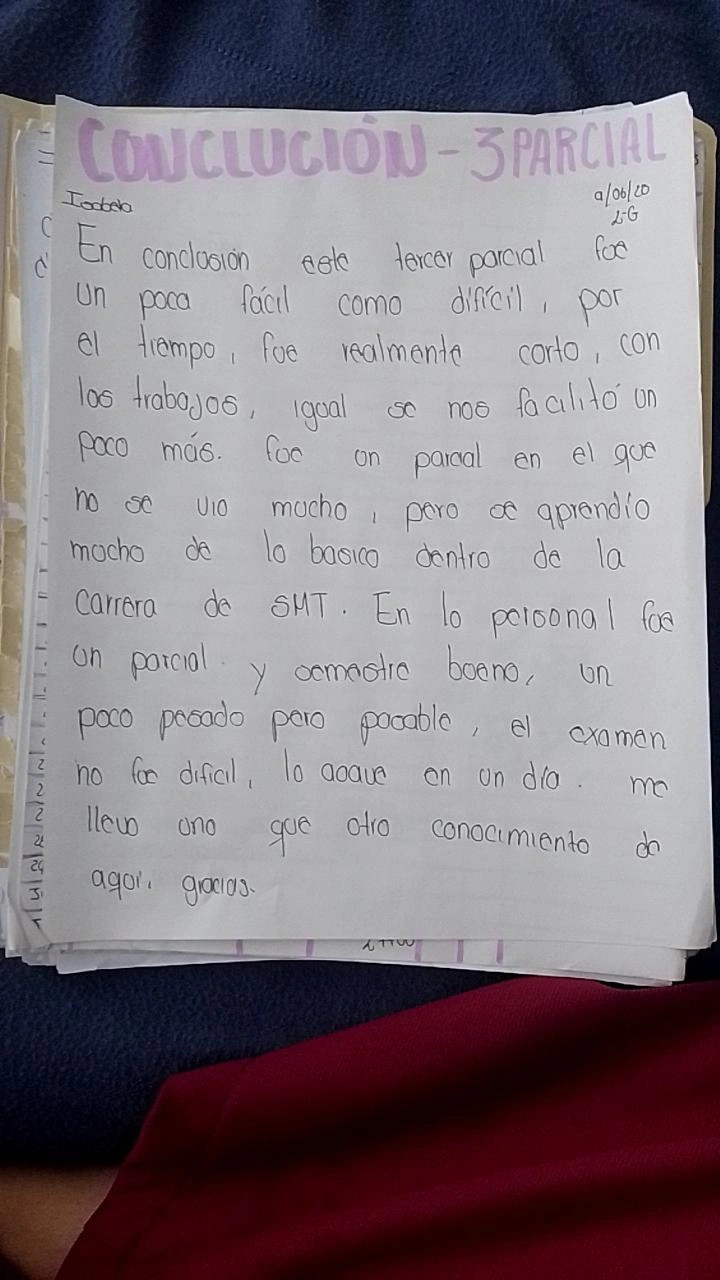 CONCLUCIÓN - 3 PARCIAL
Isabela
9/06/20
2-G
En conclusión este tercer parcial fue
un poca fácil como difícil, por
el tiempo, fue realmente corto, con
los trabajos, igual se nos facilitó un
poco más. fue un parcial en el que
no se vio mucho, pero se aprendio
mucho de lo basico dentro de la
Carrera de SMT. En lo personal fue
un parcial y semestre bueno, un
poco pesado pero pasable, el examen
no fue dificil, lo saque en un día. me
llevo uno que otro conocimiento de
aqui. gracias.